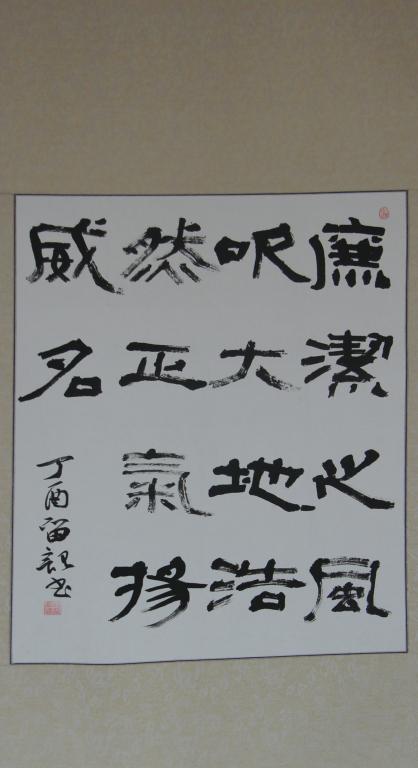 廉潔之風
吹大地浩
然正氣揚
威名
丁酉留親书